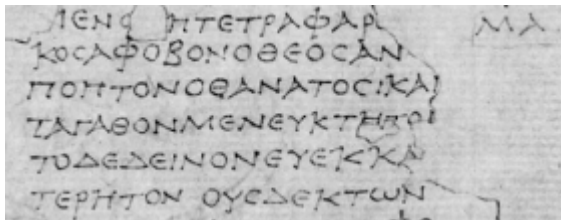 ΜΕΝΟΣ ΗΤΕΤΡΑΦΑΡ ΜΑ
ΚΟϹΑΦΟΒΟΝΟΘΕΟϹΑΝ
ΠΟΠΤΟΝΟΘΑΝΑΤΟϹΚΑΙ
ΤΑΓΑΘΟΝΜΕΝΕΥΚΤΗΤΟ
ΤΟΔΕΔΕΙΝΟΝΕΥΕΚΚΑ
ΤΕΡΗΤΟΝ ΟΥϹΔΕΚΤΩΝ